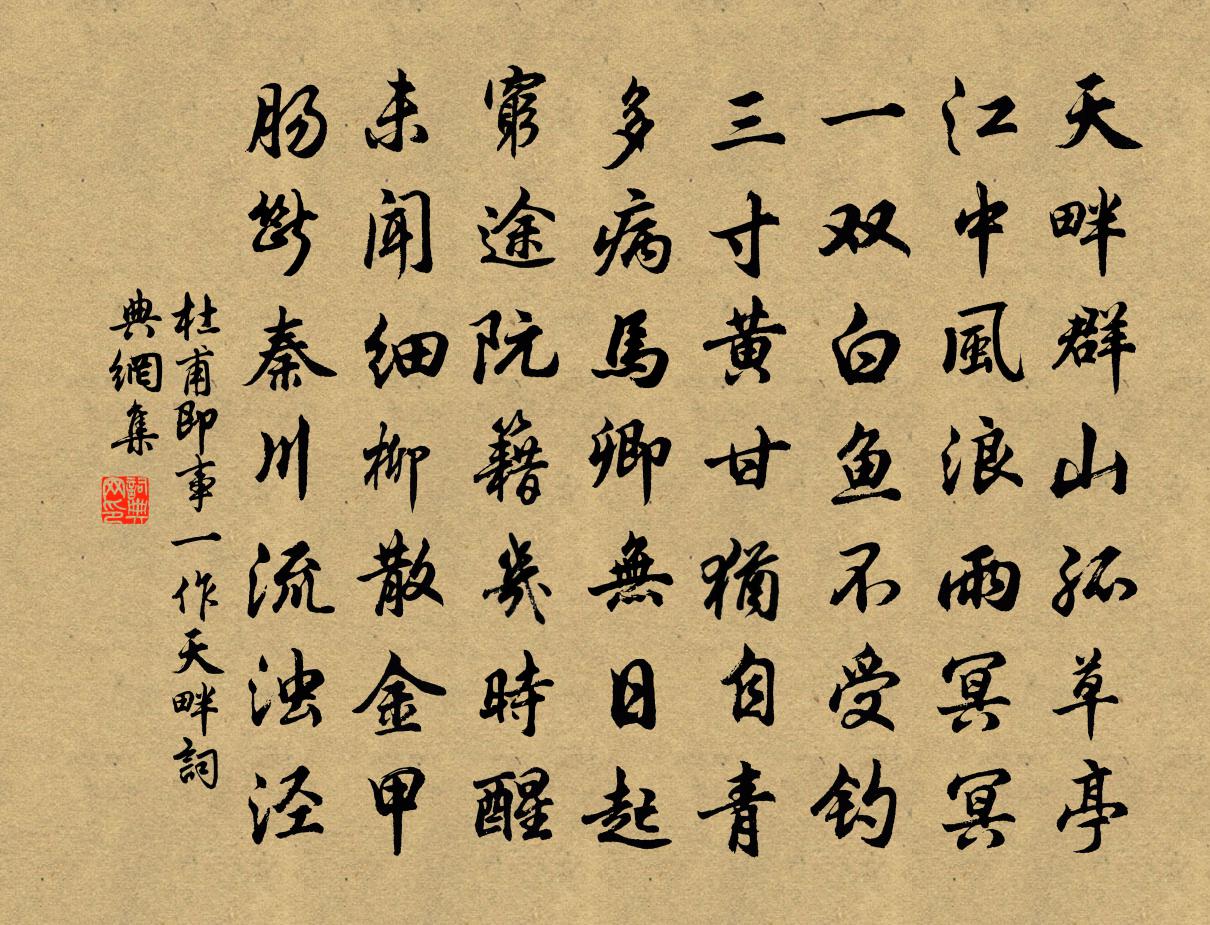 天畔群山孤草亭
江中風浪雨冥冥
一双白鱼不受钓
三寸黄甘猶自青
多病馬卿無日起
窮途阮籍幾時醒
未闻细柳散金甲
肠斷秦川流浊泾
杜甫即事一作天畔詞
典網集
詞典
网印